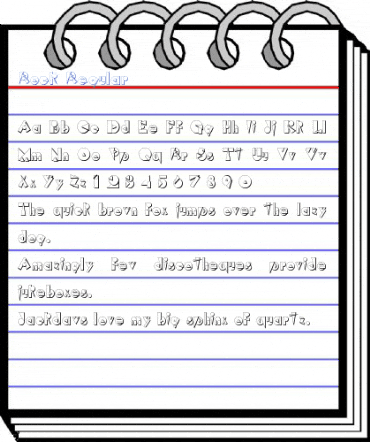 Rock Regular
Aa Bb Cc Dd Ee Ff Gg Hh Ii Jj Kk Ll
Mm Nn Oo Pp Qq Rr Ss Tt Uu Vv Vv
Xx Yy Zz 1 2 3 4 5 6 7 8 9 0
The quick brown fox jumps over the lazy
dog.
Amazingly few discotheques provide
jukeboxes.
Jackdaws love my big sphinx of quartz.